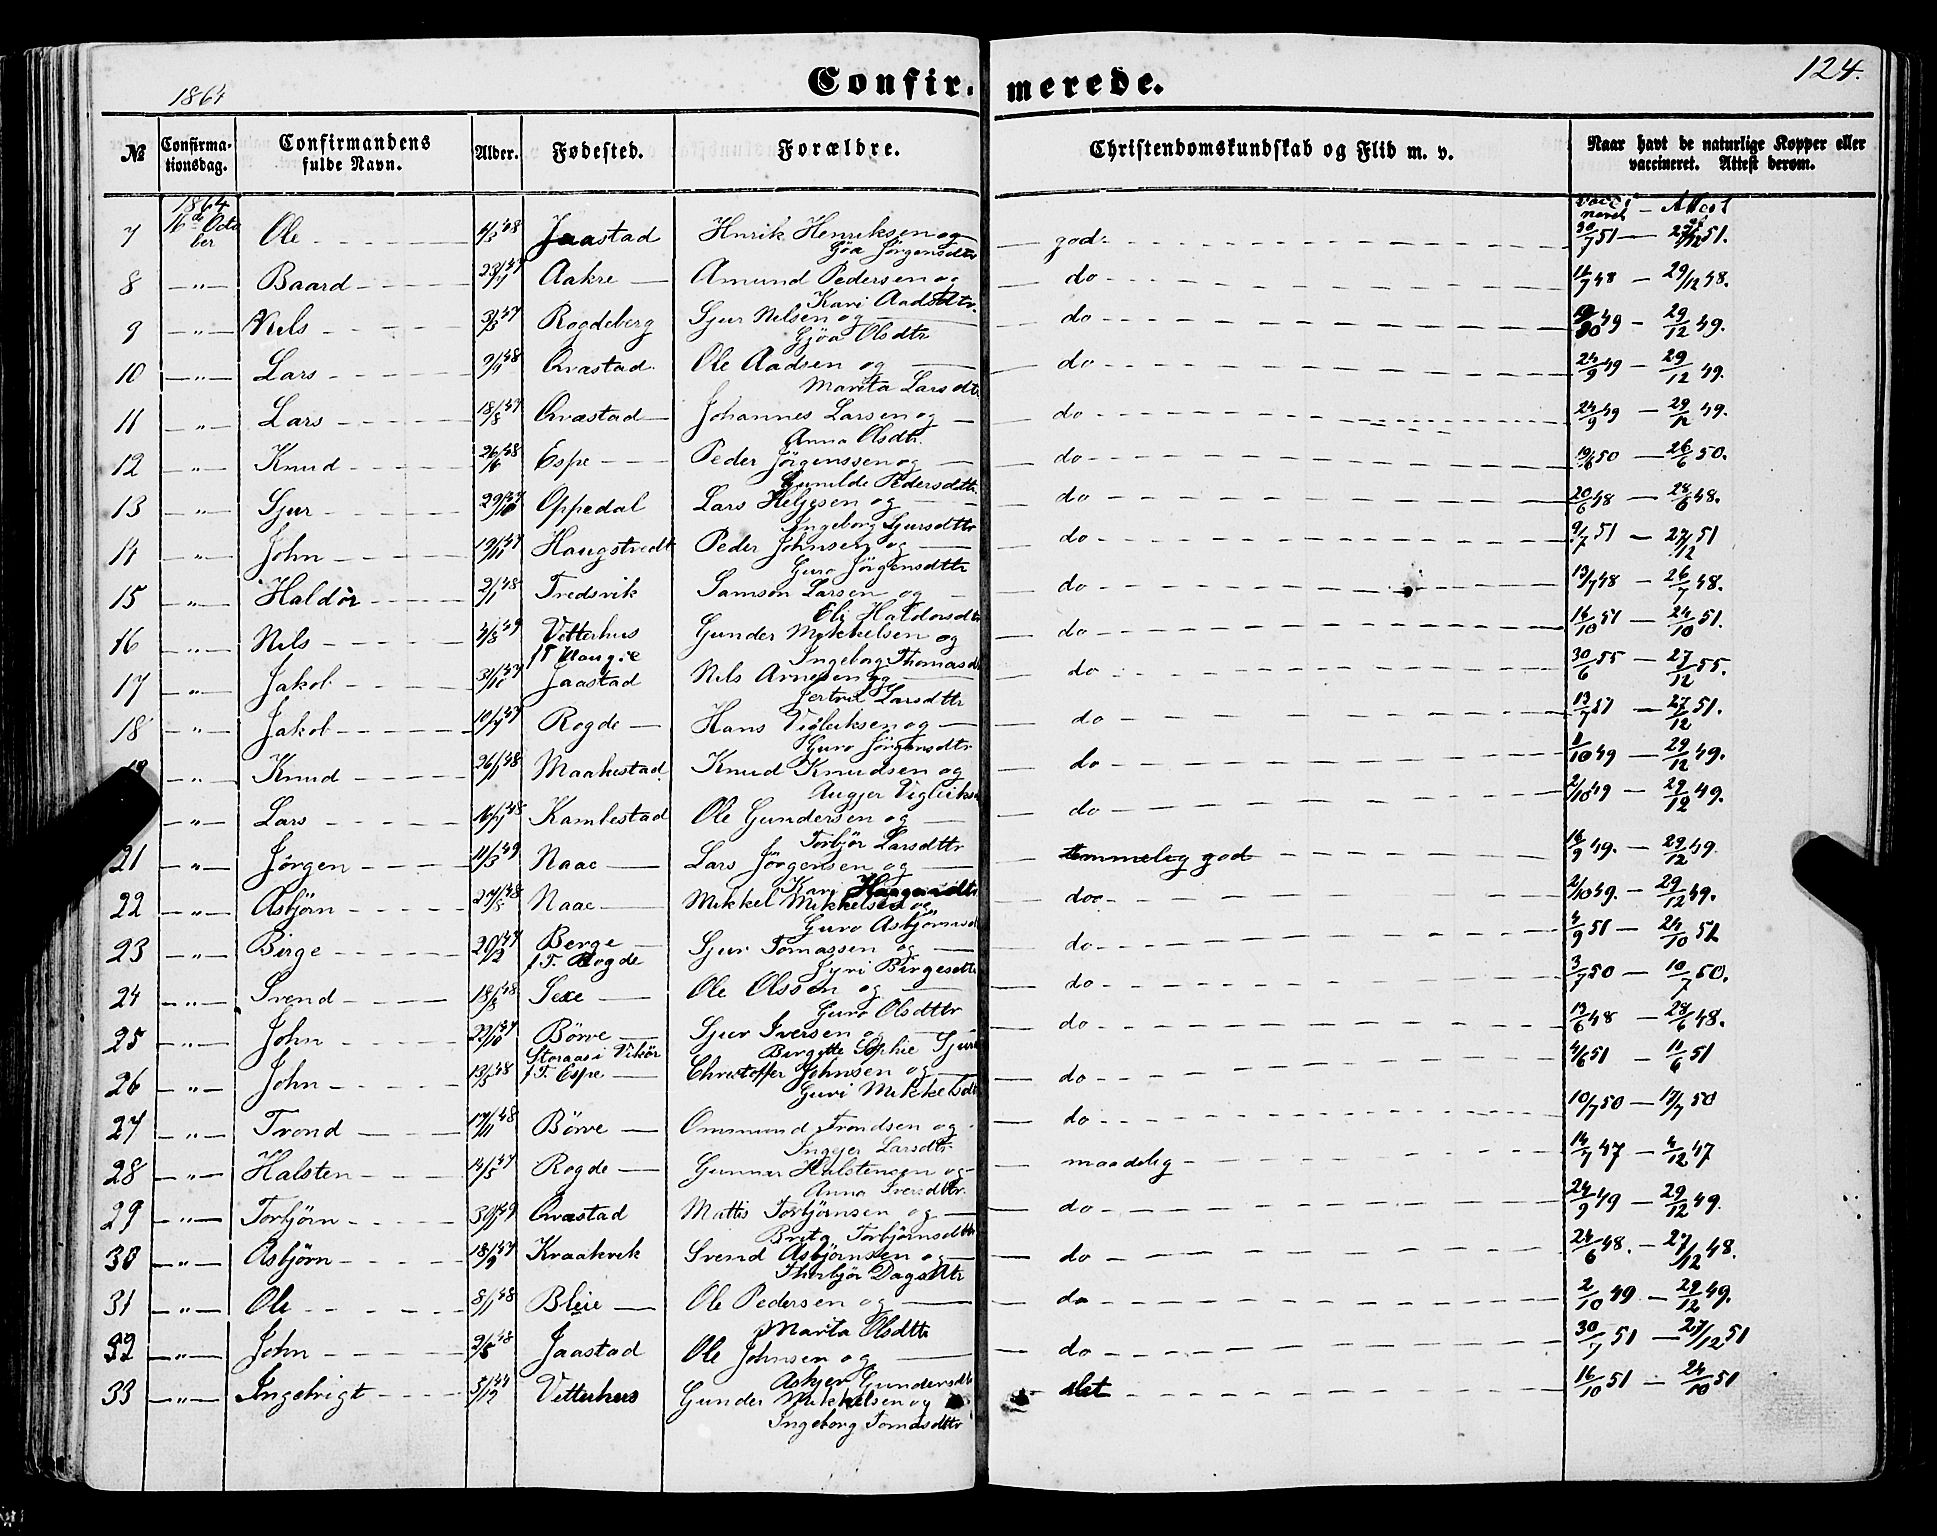 124.
1864
Confirmerede.
№ Confirmationsdag. Confirmandens fulde Navn. Alder. Fødested. Forældre. Christendomskundskab og Flid m. v. Naar havt de naturlige Kopper eller vaccineret. Attest derom.
1864 Attest
7 16de October Ole Jaastad Henriksen og god 30/7 51
Gjøa Jørgensdtr
8 —"— Baard Aakre Amund Pedersen og do 11/7 48 — 29/12 48.
Kari Aadsdtr.
9 —"— Nils Rogdeberg Sjur Nilsen og do 29/12 49.
Gjøa Olsdtr
10 —"— Lars 9/1 48 Qvæstad Ole Aadsen og do 24/9 49 — 29/12 49.
Marita Larsdtr
11 —"— Lars 18/8 47 Qvæstad Johannes Larsen og do 24/9 49 — 29/12 49.
Anna Olsdtr.
12 —"— Knud 26/6 48 Espe Peder Jørgenssen og do 19/6 50 — 26/6 50.
Gunilde Pedersdtr.
13 —"— Sjur Oppedal Lars Helgesen og do 20/6 48 — 28/6 48.
Ingeborg Sjursdttr
14 —"— John 19/11 47 Haugstvedt Peder Johnsen og do 9/7 51 — 27/12 51
Guro Jørgensdttr
15 —"— Haldor 2/1 48 Tredsvik Samson Larsen og do 13/7 48 — 26/7 48.
Eli Haldorsdtr
16 —"— Nils 4/8 49 Vetterhus Gunder Mikkelsen og do 16/10 51 — 24/10 51.
Ingeborg Thomasd
17 —"— Jakob 31/10 47 Jaastad Nils Arnesen og do 30/6 55 — 27/12 55.
Larsdttr
18 —"— Jakob Rogde Hans Vigleiksen og do 13/7 51 — 27/12 51.
Guro Jørgensdtr
19 —"— Knud 26/1 48 Maakestad Knud Knudsen og do 11/10 49 — 29/12 49.
Augjer Vigleiksd
—"— Lars Kambestad Ole Gundersen og do 2/10 49 — 29/12 49.
Torbjør Larsdttr
21 —"— Jørgen 11/3 49 Naae Lars Jørgensen og temmelig god 16/9 49. — 29/12 49
Kari
22 —"— Asbjørn Naae Mikkel Mikkelsen og do 2/10 49. — 29/12 49.
Guro Asbjørnsd
23 —"— Birge Berge Sjur Tomassen og do 4/9 51 — 24/10 51
f.T. Rogde
Jyri Birgesdtr
24 —"— Svend 18/8 48 Sexe Ole Olsson og do 3/7 50 — 10/7 50.
Guro Olsdttr
25 —"— John 22/10 47 Børve Sjur Iversen og do 13/6 48 — 28/6 48.
Birgitte Sophie Sjurs
26 —"— John 13/5 48 Storaas i Vikør f.T. Espe Christoffer Johnsen og do 4/6 51 — 11/6 51
Guri Mikkelsdt
27 —"— Trond 17/11 48 Børve Ommund Trondsen og do 10/7 50 — 17/7 50
Ingjer Larsdtr
28 —"— Halsten 14/5 47 Rogde Gunnar Halstensen og maadelig 14/7 47 — 4/12 47
Anna Iversdttr.
29 —"— Torbjørn Qvæstad Mattis Torbjørnsen og do 24/9 49 — 29/12 49.
Brita Torbjørnsdttr
30 —"— Asbjørn 18/9 47 Kraakevik Svend Asbjørnsen og do 24/6 48. — 27/12 48.
Thorbjør Dagsdttr
31 —"— Ole 8/1 48 Bleie Ole Pedersen og do 2/10 49 — 29/12 49.
Marta Olsdttr
32 —"— John 9/5 48 Jaastad Ole Johnsen og do 30/7 51 — 27/12 51
Askjer Gundersdtr
33 —"— Ingebrigt Vetterhus Gunder Mikkelsen og slet 16/10 51 — 24/10 51
Ingeborg Tomasdttr